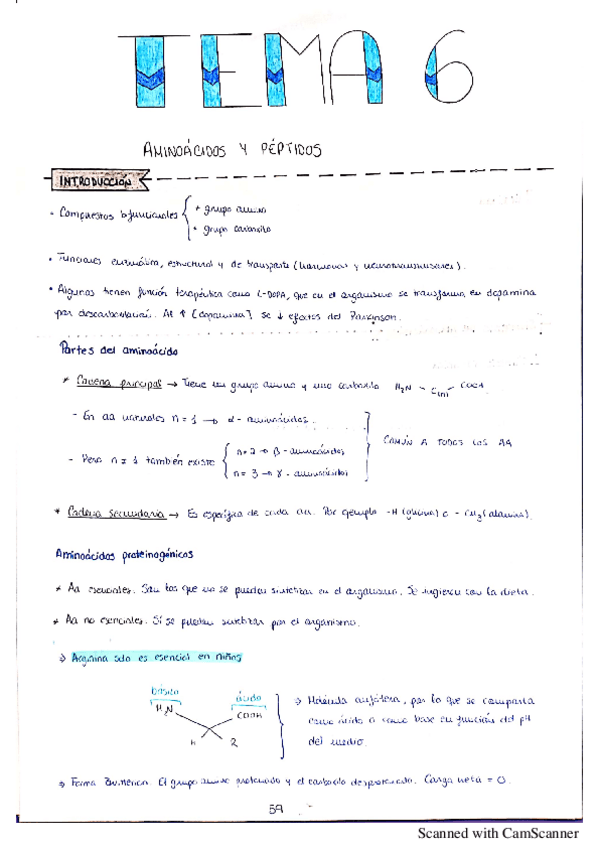 TEMA 6
AMINOÁCIDOS Y PÉPTIDOS
INTRODUCCIÓN
• Compuestos bifuncionales { • grupo amino
• grupo carboxilo
• Funciones enzimática, estructural y de transporte (hormonas y neurotransmisores).
• Algunos tienen función terapéutica como L-DOPA, que en el organismo se transforma en dopamina
por descarboxilación. Al ↑ [dopamina] se ↓ efectos del Parkinson.
Partes del aminoácido
* Cadena principal → Tiene un grupo amino y uno carboxilo H2N - C(n) - COOH
- En aa naturales n = 1 → α - aminoácidos.
- Pero n ≠ 1 también existe { n = 2 → β - aminoácidos
n = 3 → γ - aminoácidos
COMÚN A TODOS LOS AA
* Cadena secundaria → Es específica de cada aa. Por ejemplo -H (glicina) o - CH3 (alanina).
Aminoácidos proteinogénicos
* Aa esenciales. Son los que no se pueden sintetizar en el organismo. Se ingieren con la dieta.
* Aa no esenciales. Sí se pueden sintetizar por el organismo.
→ Arginina solo es esencial en niños
básico
ácido
H2N
COOH
H
R
→ Molécula anfótera, por lo que se comporta
como ácido o como base en función del pH
del medio.
→ Forma Zwitterion. El grupo amino protonado y el carboxilo desprotonado. Carga neta = 0.
59
Scanned with CamScanner